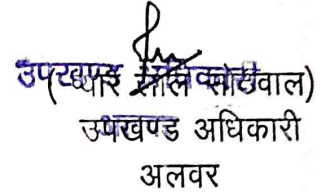 (प्यारे लाल सोठवाल)
उपखण्ड अधिकारी
अलवर